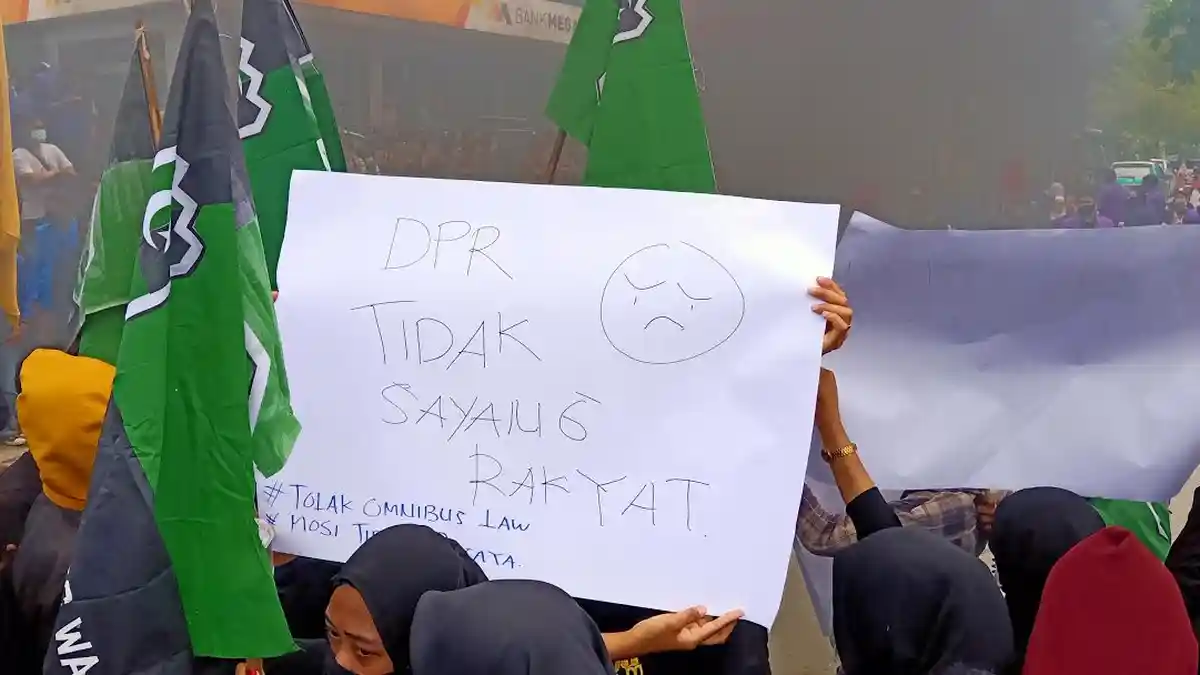 BANKMEGA
DPR
TIDAK
SAYANG
RAKYAT.
# TOLAK OMNIBUS LAW
* MOSI
WA